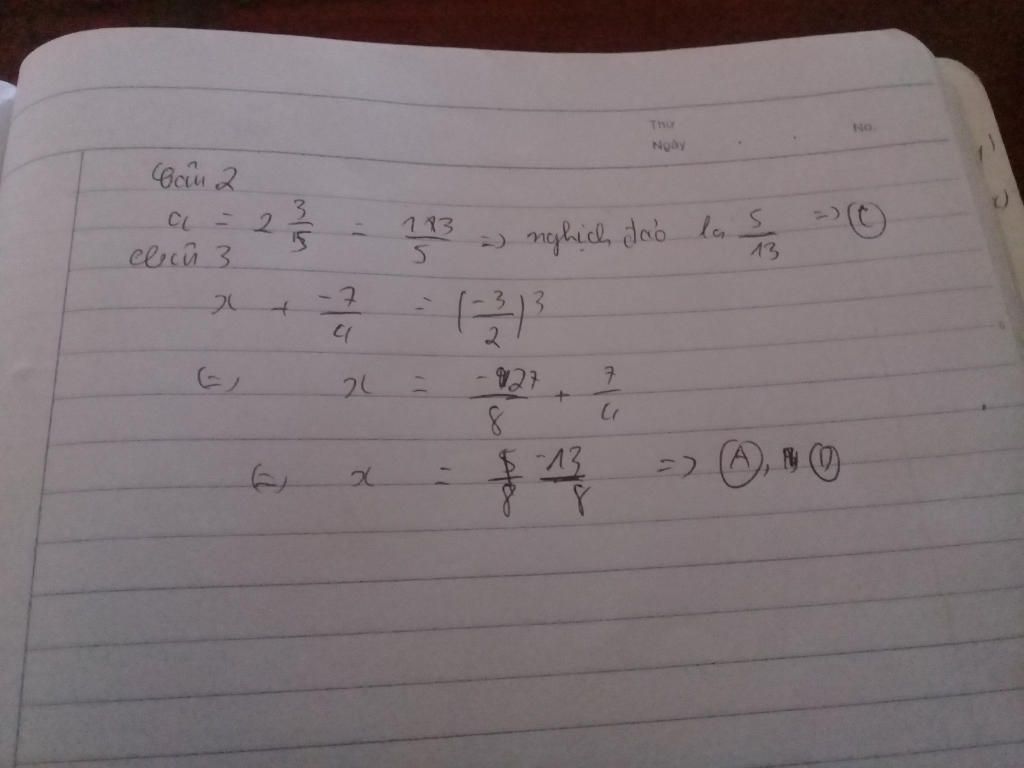 Thứ
Ngày No.
Câu 2
a = 2 3/5 = 13/5 => nghịch đảo là 5/13 => C
Câu 3
x + -7/4 = (-3/2)3
<=> x = -27/8 + 7/4
<=> x = -13/8 => A, D